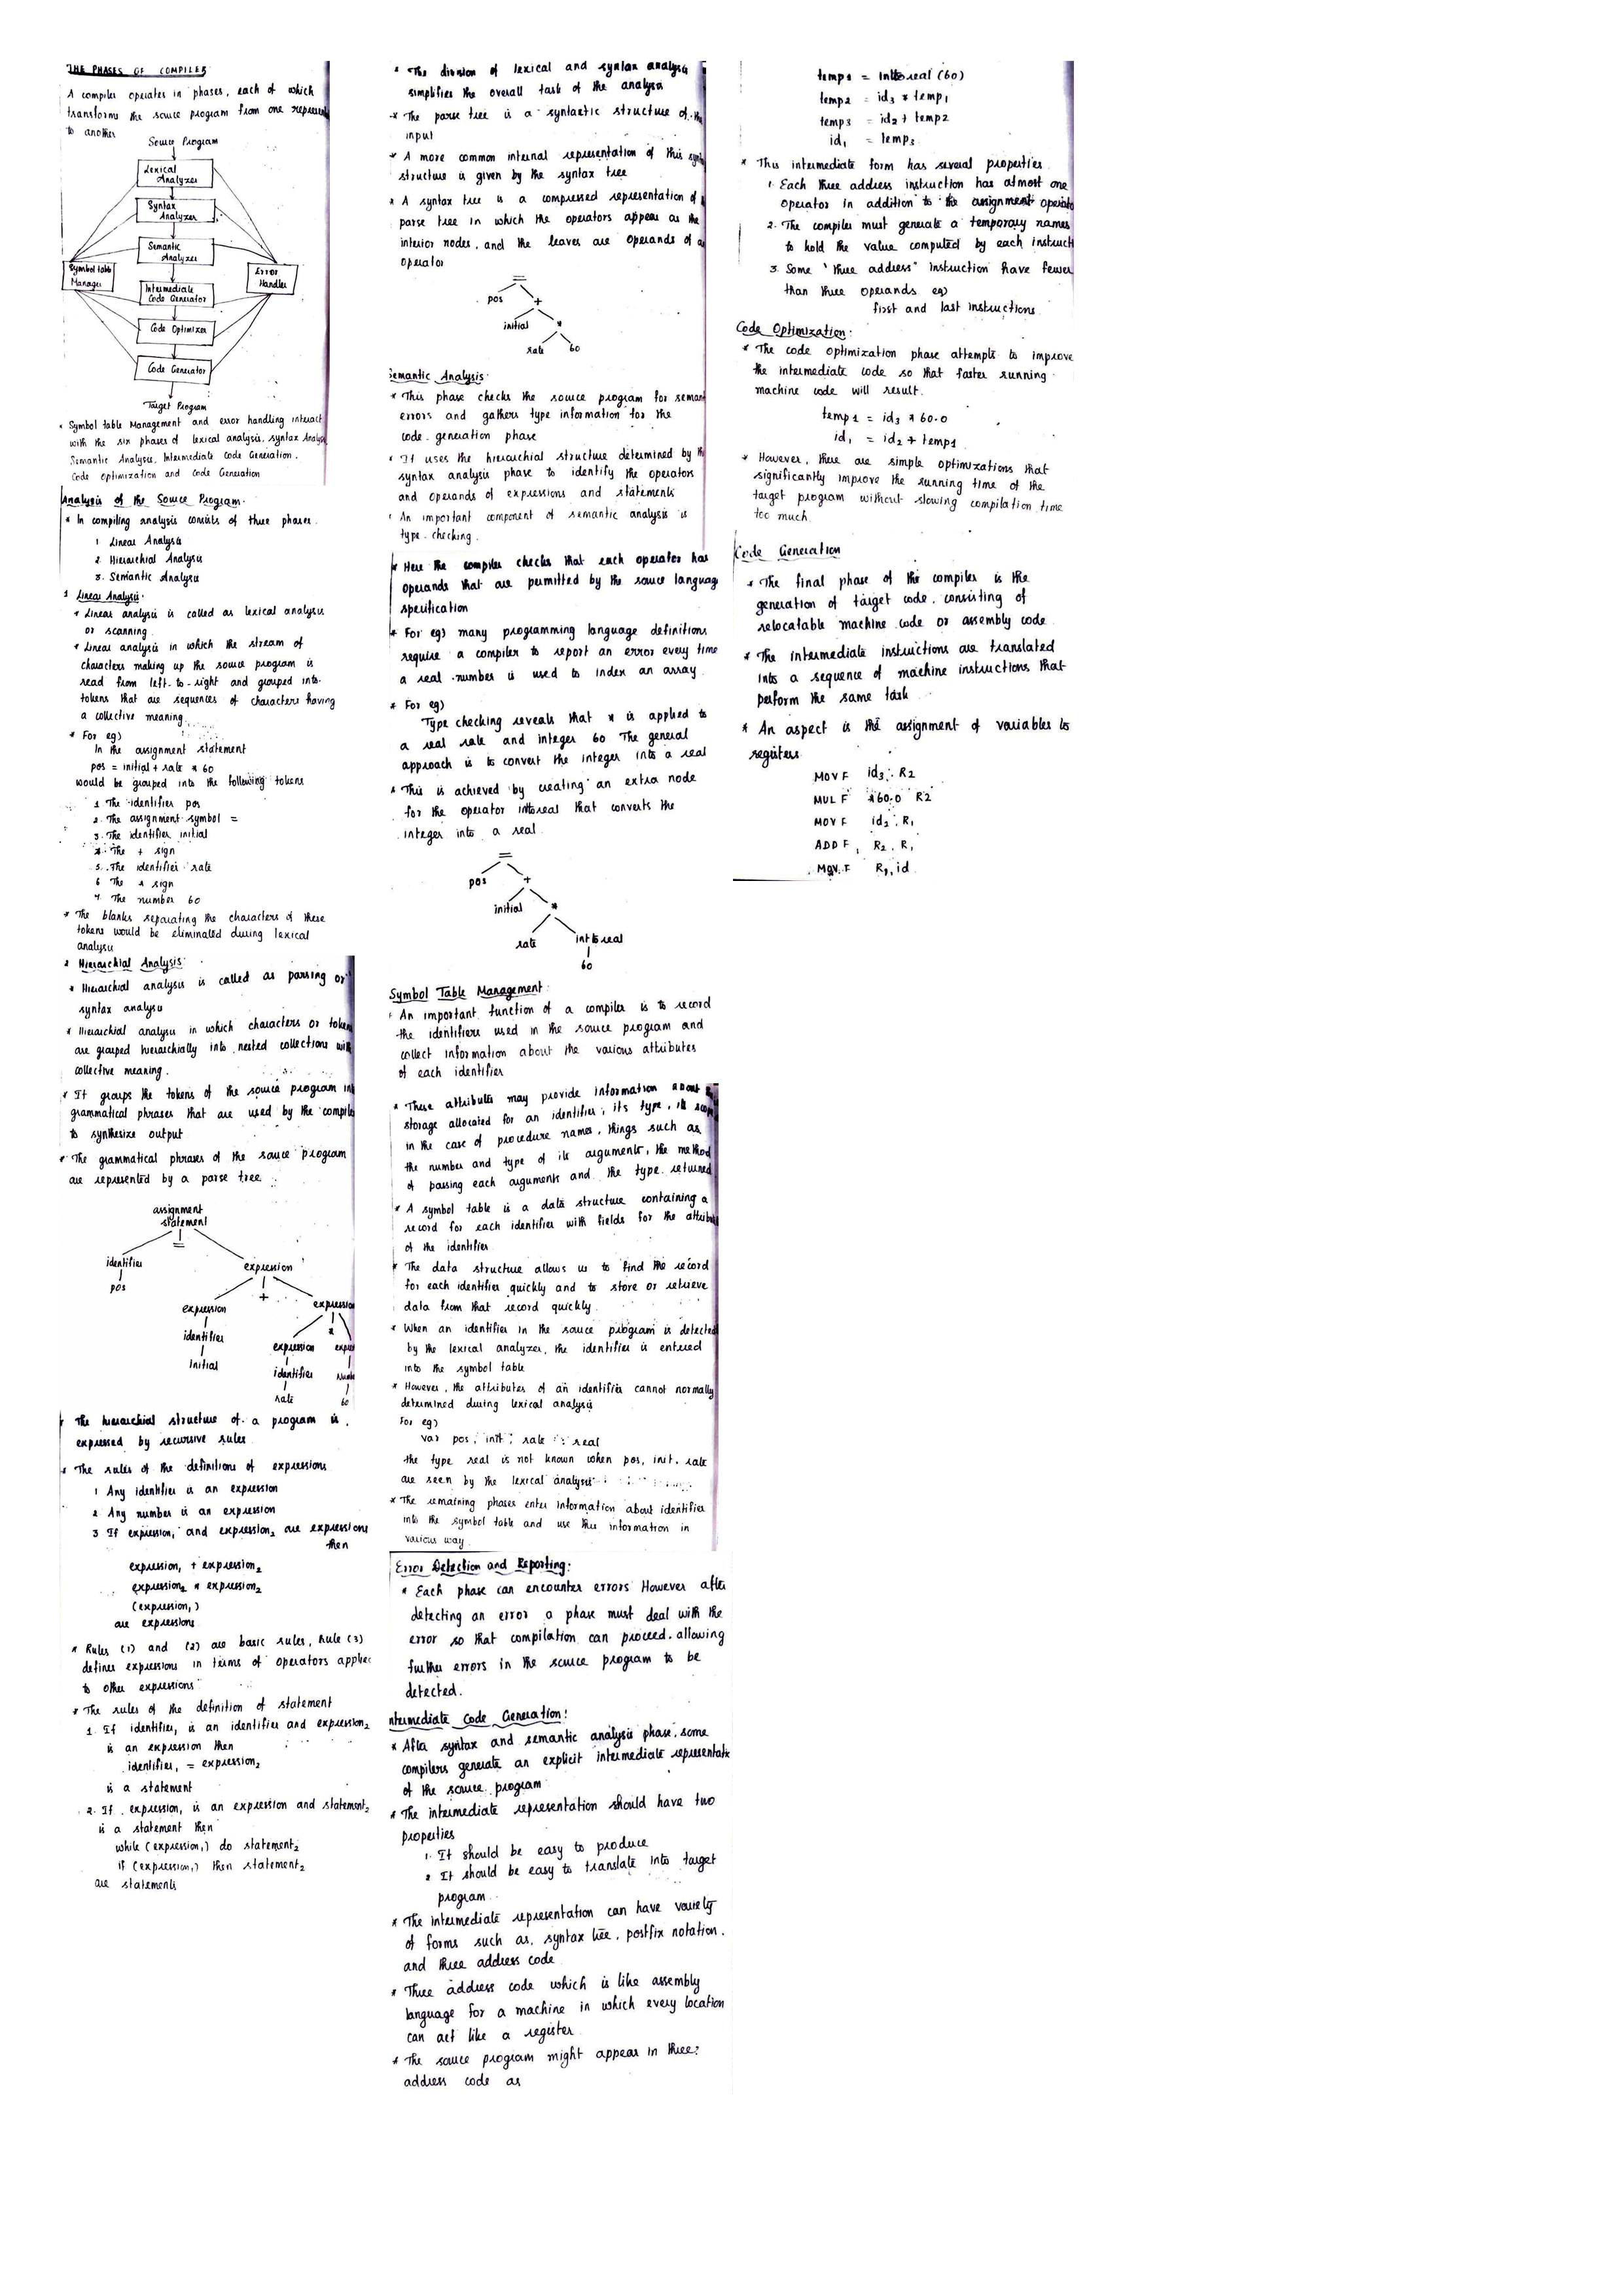 THE PHASES OF COMPILER
A compiler operates in phases, each of which
transforms the source program from one represent
to another
Source Program
Lexical
Analyzer
Syntax
Analyzer
Semantic
Analyzer
Symbol table
Manager
Error
Handler
Intermediate
Code Generator
Code Optimizer
Code Generator
Target Program
* Symbol table Management and error handling interact
with the six phases of lexical analysis, syntax Analys
Semantic Analysis, Intermediate Code Generation.
Code optimization and Code Generation
Analysis of the Source Program.
* In compiling analysis consists of three phases.
1 Linear Analysis
2. Hierarchial Analysis
3. Semantic Analysis
1 Linear Analysis.
* Linear analysis is called as lexical analysis
or scanning.
* Linear analysis in which the stream of
characters making up the source program is
read from left-to-right and grouped into
tokens that are sequences of characters having
a collective meaning.
* For eg)
In the assignment statement
pos = initial + rate * 60
would be grouped into the following tokens
1 The identifier pos
2. The assignment symbol =
3. The identifier initial
4. The + sign
5. The identifier rate
6 The * sign
7 The number 60
* The blanks separating the characters of these
tokens would be eliminated during lexical
analysis
2 Hierarchial Analysis:
* Hierarchial analysis is called as parsing or
syntax analysis
* Hierarchial analysis in which characters or token
are grouped hierarchially into nested collections with
collective meaning.
* It groups the tokens of the source program in
grammatical phrases that are used by the compile
to synthesize output
* The grammatical phrases of the source program
are represented by a parse tree
assignment
statement
=
identifier
expression
pos
+
expression
expression
*
identifier
expression
expre
initial
identifier
rate
60
* The hierarchial structure of a program is
expressed by recursive rules
* The rules of the definitions of expressions
1 Any identifier is an expression
2 Any number is an expression
3 If expression₁ and expression₂ are expressions
then
expression₁ + expression₂
expression₁ * expression₂
(expression₁)
are expressions
* Rules (1) and (2) are basic rules, Rule (3)
defines expressions in terms of operators applied
to other expressions
* The rules of the definition of statement
1. If identifier₁ is an identifier and expression₂
is an expression then
identifier₁ = expression₂
is a statement
2. If expression₁ is an expression and statement₂
is a statement then
while (expression₁) do statement₂
if (expression₁) then statement₂
are statements
* The division of lexical and syntax analysis
simplifies the overall task of the analysis
* The parse tree is a syntactic structure of the
input
* A more common internal representation of this synt
structure is given by the syntax tree
* A syntax tree is a compressed representation of
parse tree in which the operators appear as the
interior nodes, and the leaves are operands of a
operator
=
pos
+
initial
*
rate
60
Semantic Analysis:
* This phase checks the source program for semant
errors and gathers type information for the
code-generation phase
* It uses the hierarchial structure determined by th
syntax analysis phase to identify the operators
and operands of expressions and statements
* An important component of semantic analysis is
type-checking.
* Here the compiler checks that each operator has
operands that are permitted by the source language
specification
* For eg) many programming language definitions
require a compiler to report an error every time
a real number is used to index an array.
* For eg)
Type checking reveals that * is applied to
a real rate and integer 60 The general
approach is to convert the integer into a real
* This is achieved by creating an extra node
for the operator inttoreal that converts the
integer into a real
=
pos
+
initial
*
rate
inttoreal
60
Symbol Table Management:
* An important function of a compiler is to record
the identifiers used in the source program and
collect information about the various attributes
of each identifier
* These attributes may provide information about
storage allocated for an identifier, its type, its scop
in the case of procedure names, things such as
the number and type of its arguments, the method
of passing each arguments and the type returned
* A symbol table is a data structure containing a
record for each identifier with fields for the attribu
of the identifier
* The data structure allows us to find the record
for each identifier quickly and to store or retrieve
data from that record quickly
* When an identifier in the source program is detected
by the lexical analyzer, the identifier is entered
into the symbol table
* However, the attributes of an identifier cannot normally
determined during lexical analysis
For eg)
var pos, init, rate : real
the type real is not known when pos, init, rate
are seen by the lexical analysis
* The remaining phases enter information about identifier
into the symbol table and use this information in
various way.
Error Detection and Reporting:
* Each phase can encounter errors However after
detecting an error a phase must deal with the
error so that compilation can proceed, allowing
further errors in the source program to be
detected.
ntermediate Code Generation:
* After syntax and semantic analysis phase, some
compilers generate an explicit intermediate representati
of the source program
* The intermediate representation should have two
properties
1. It should be easy to produce
2 It should be easy to translate into target
program
* The intermediate representation can have variety
of forms such as, syntax tree, postfix notation,
and three address code
* Three address code which is like assembly
language for a machine in which every location
can act like a register
* The source program might appear in three
address code as
temp1 = inttoreal (60)
temp2 = id3 * temp1
temp3 = id2 + temp2
id1 = temp3
* This intermediate form has several properties.
1. Each three address instruction has atmost one
operator in addition to the assignment operato
2. The compiler must generate a temporary names
to hold the value computed by each instruct
3. Some "three address" instruction have fewer
than three operands eg)
first and last instructions
Code Optimization:
* The code optimization phase attempts to improve
the intermediate code so that faster running
machine code will result.
temp1 = id3 * 60.0
id1 = id2 + temp1
* However, there are simple optimizations that
significantly improve the running time of the
target program without slowing compilation time
too much
Code Generation
* The final phase of the compiler is the
generation of target code, consisting of
relocatable machine code or assembly code
* The intermediate instructions are translated
into a sequence of machine instructions that
perform the same task
* An aspect is the assignment of variables to
registers
MOVF id3, R2
MULF #60.0 R2
MOVF id2, R1
ADDF R2, R1
MOVF R1, id